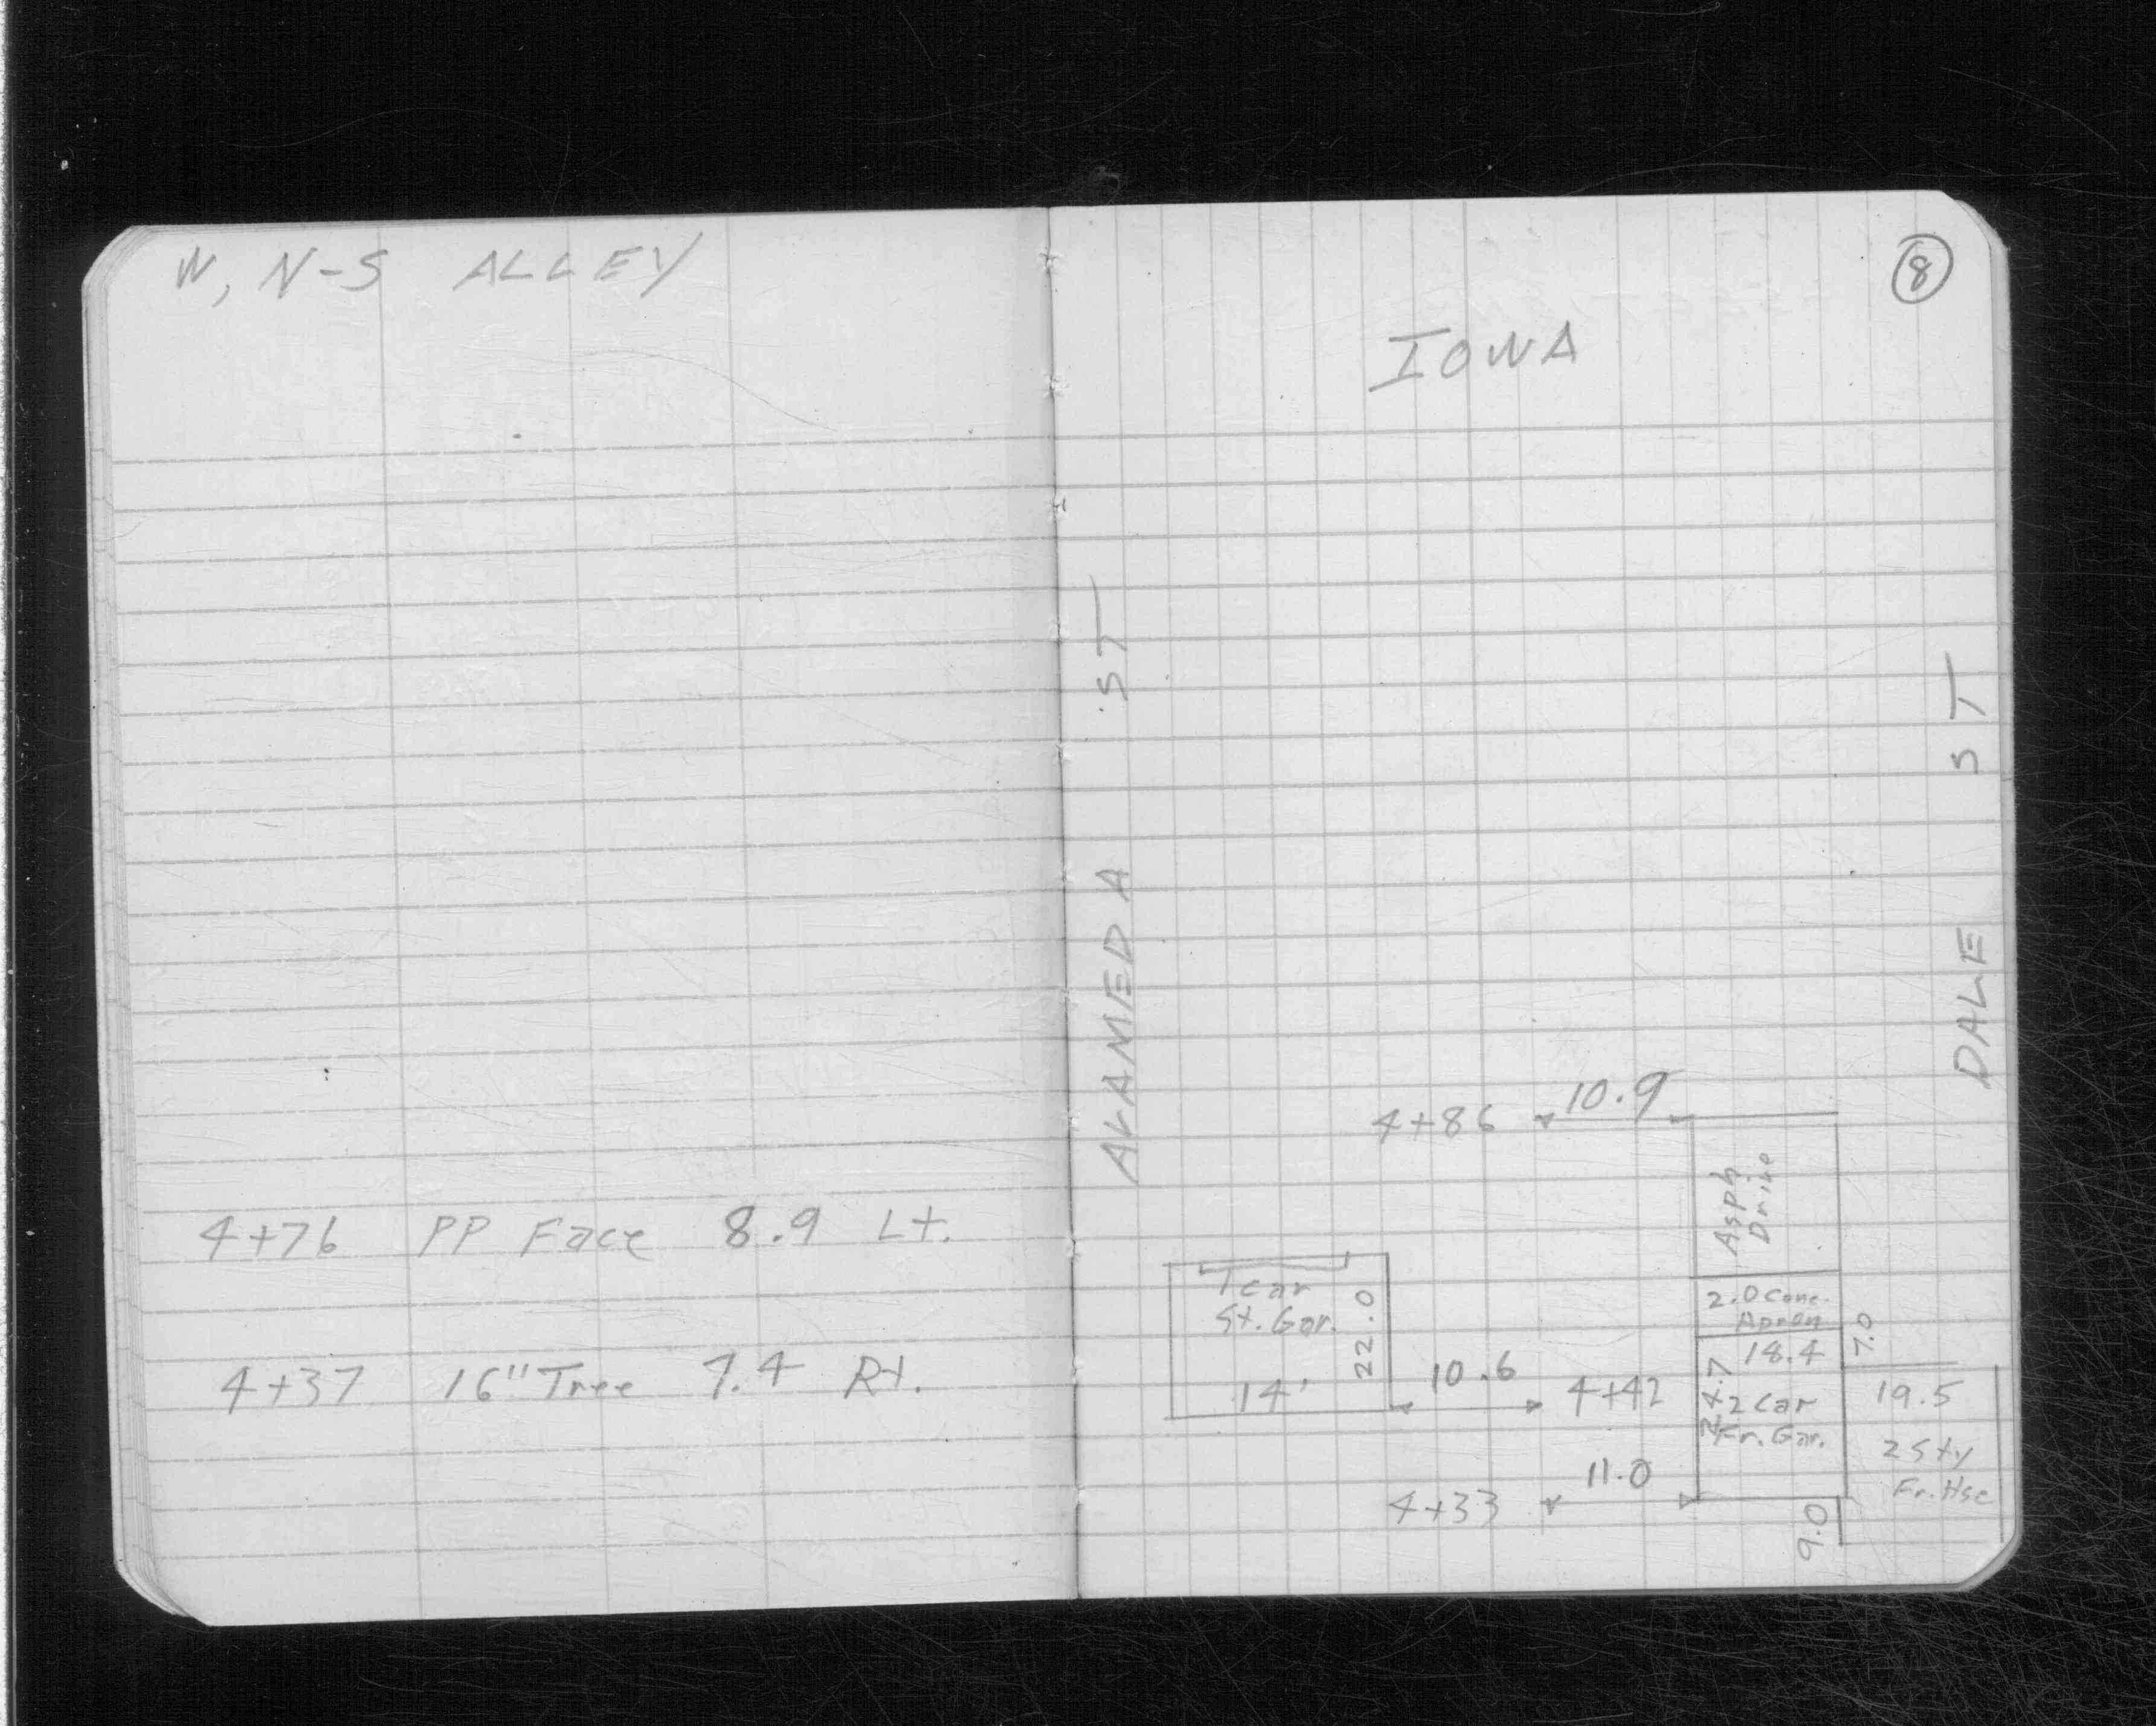 W, N-S ALLEY
4+76 PP Face 8.9 Lt.
4+37 16" Tree 7.4 Rt.
8
IOWA
ALAMEDA ST
DALE ST
4+86 10.9
Asph
Drive
1 car
St. Gar.
22.0
14'
10.6
4+42
2.0 Conc.
Apron
7.0
18.4
24.7
2 Car
Fr. Gar.
19.5
2 Sty
Fr. Hse
4+33 11.0
9.0